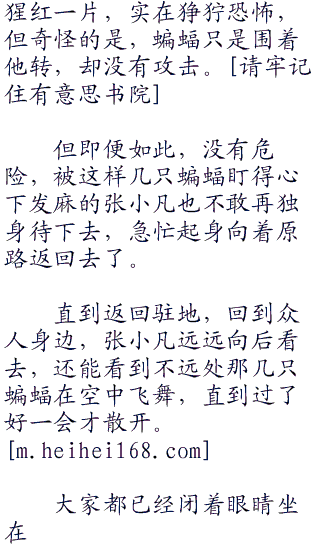 猩红一片，实在狰狞恐怖，
但奇怪的是，蝙蝠只是围着
他转，却没有攻击。[请牢记
住有意思书院]
但即便如此，没有危
险，被这样几只蝙蝠盯得心
下发麻的张小凡也不敢再独
身待下去，急忙起身向着原
路返回去了。
直到返回驻地，回到众
人身边，张小凡远远向后看
去，还能看到不远处那几只
蝙蝠在空中飞舞，直到过了
好一会才散开。
[m.heihei168.com]
大家都已经闭着眼睛坐
在